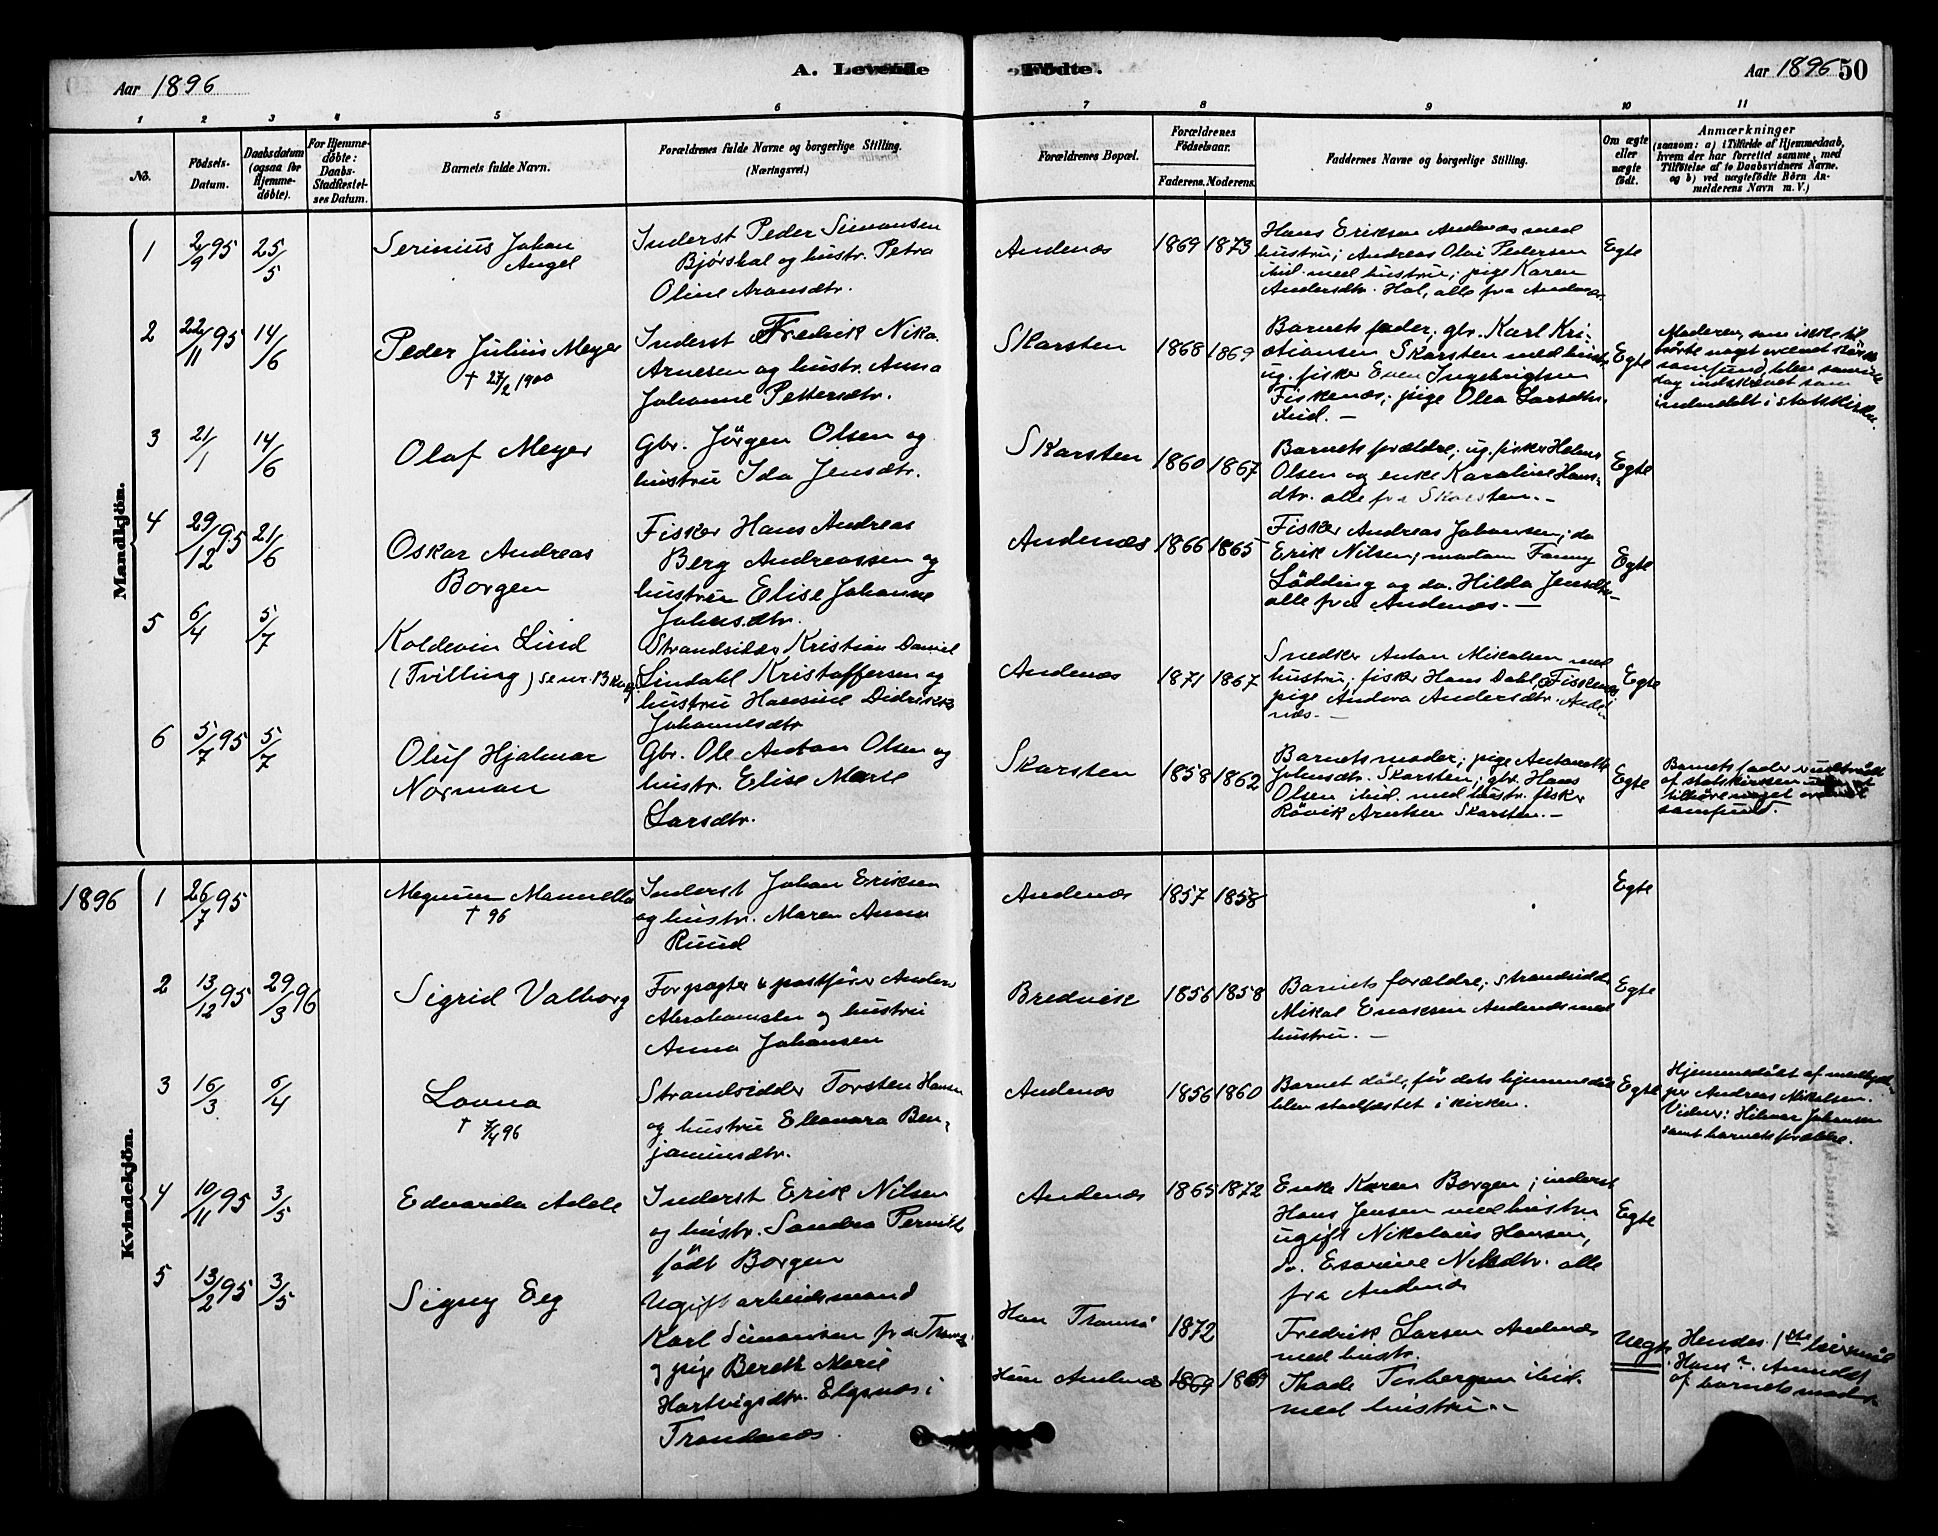 Aar 1896
A. Levende
Fødte.
Aar 1896 50
1 2 3 4 5 6 7 8 9 10 11
No.
Fødsels-
Datum.
Daabsdatum
(ogsaa for
Hjemme-
døbte).
For Hjemme-
døbte:
Daabs-
Stadfæstel-
ses Datum.
Barnets fulde Navn.
Forældrenes fulde Navne og borgerlige Stilling.
(Næringsvei.)
Forældrenes Bopæl.
Forældrenes
Fødselsaar.
Faderens. Moderens.
Faddernes Navne og borgerlige Stilling.
Om ægte
eller
uægte
født.
Anmærkninger
(saasom: a) i Tilfælde af Hjemmedaab,
hvem der har forrettet samme, med
Tilføielse af to Daabsvidners Navne,
og b) ved uægtefødte Børn An-
melderens Navn m. V.)
Mandkjön.
1
2/9 95
25/5
Serinius Johan
Angel
Inderst Peder Simonsen
Bjørskal og hustr. Petra
Oline Aronsdtr.
Andenæs
1869 1873
Hans Eriksen Andenæs med
hustru; Andreas Olai Pedersen
ibid. med hustru; pige Karen
Andersdtr. Hol, alle fra Andenæs
Egte
2
22/11 95
14/6
Peder Julius Meyer
† 27/2 1900
Inderst Fredrik Nika
Arnesen og hustr. Anna
Johanne Pettersdtr.
Skarsten
1868 1869
Barnets fader; gbr. Karl Kri-
stiansen Skarsten med hustr.
ug. fisker Even Ingebrigtsen
Fiskenæs; pige Olea Larsdtr.
ibid. —
Egte
Moderen, som ikke til-
hørte noget ordnet kirke
samfund, blev samme
dag indskrevet som
indmeldt i statskirken.
3
21/1
14/6
Olaf Meyer
Gbr. Jörgen Olsen og
hustru Ida Jensdtr.
Skarsten
1860 1867
Barnets forældre; ug. fisker Helmer
Olsen og enke Karoline Hans-
dtr. alle fra Skarsten. -
Egte
4
29/12 95
21/6
Oskar Andreas
Borgen
Fisker Hans Andreas
Berg Andreassen og
hustru Elise Johanne
Johnsdtr.
Andenæs
1866 1865
Fisker Andreas Johansen; do
Erik Nilsen; madam Fanny
Lödding og do. Hilda Jensdtr.
alle fra Andenæs. —
Egte
5
6/4
5/7
Koldevin Lind
(Tvilling) se nr.
Strandsidder Kristian Daniel
Lindahl Kristoffersen og
hustru Hansine Didrikke
Johannesdtr
Andenæs
1871 1867
Snedker Anton Mikalsen med
hustru; fisker Hans Dahl, Fiskenæs
pige Andora Andersdtr. Ande-
næs. —
Egte
6
5/7 95
5/7
Oluf Hjalmar
Norman
Gbr. Ole Antan Olsen og
hustr. Elise Marie
Larsdtr.
Skarsten
1858 1862
Barnets moder; pige Antonette
Johnsdtr. Skarsten; gbr. Hans
Olsen ibid. med hustr. fisker
Rövik Arntsen Skarsten. —
Egte
Barnets fader er udtraadt
af statskirken uden at
tilhøre noget ordnet
samfund.
1896
Kvindekjön.
1
26/7 95
Megnum Mannella
† 96
Inderst Johan Eriksen
og hustr. Maren Anna
Ruud
Andenæs
1857 1858
Egte
2
13/12 95
29/3 96
Sigrid Valborg
Forpagter & postfører Anders
Abrahamsen og hustru
Anna Johansen
Bredvik
1856 1858
Barnets forældre; strandsidder
Mikal Enoksen Andenæs med
hustru. —
Egte
3
16/3
6/4
Lovna
† 7/4 96
Strandsidder Torsten Hansen
og hustru Eleonara Ben-
jaminsdtr.
Andenæs
1856 1860
Barnet døde, før dets hjemmedåb
blev stadfæstet i kirken.
Egte
Hjemmedøbt af medhjæl-
per Andreas Nikolsen.
Vidner: Hilmar Johansen
samt barnets forældre.
4
10/11 95
3/5
Edvarda Adele
Inderst Erik Nilsen
og hustr. Sandra Pernille
født Borgen
Andenæs
1865 1872
Enke Karen Borgen; inderst
Hans Jensen med hustru
ugift Nikolaus Hansen,
do. Esarine Nilsdtr. alle
fra Andenæs
Egte
5
13/2 95
3/5
Signy Eeg
Ugift arbeidsmand
Karl Simonsen fra Tromsø
og pige Bereth Marie
Hartvigsdtr. Elgsnæs i
Trondenæs
Han Tromsö
Hun Andenæs
1872
1869 1869
Fredrik Larsen Andenæs
med hustr.
Thade Torbergsen ibid.
med hustru. -
Uegte
Hendes 1ste leiermål
Hans ". Anmeldt
af barnets moder.